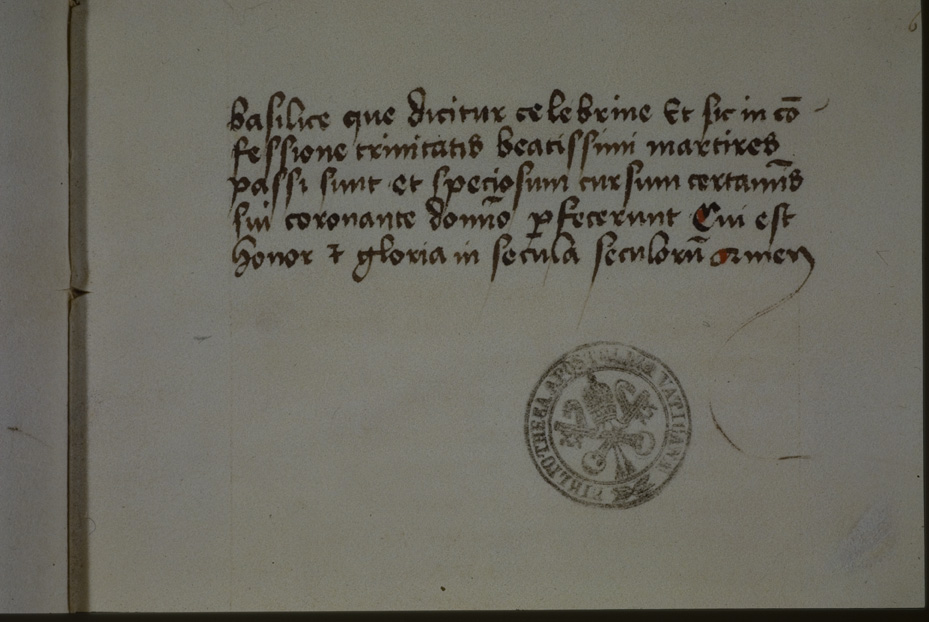 basilice que dicitur celebrine Et sic in cō
fessione trinitatis beatissimi martires
passi sunt et speciosum cursum certamīs
sui coronante domīo ꝑfecerunt Cui est
honor ⁊ gloria in secula seculorū Amen
6
BIBLIOTHECA APOSTOLICA VATICANA